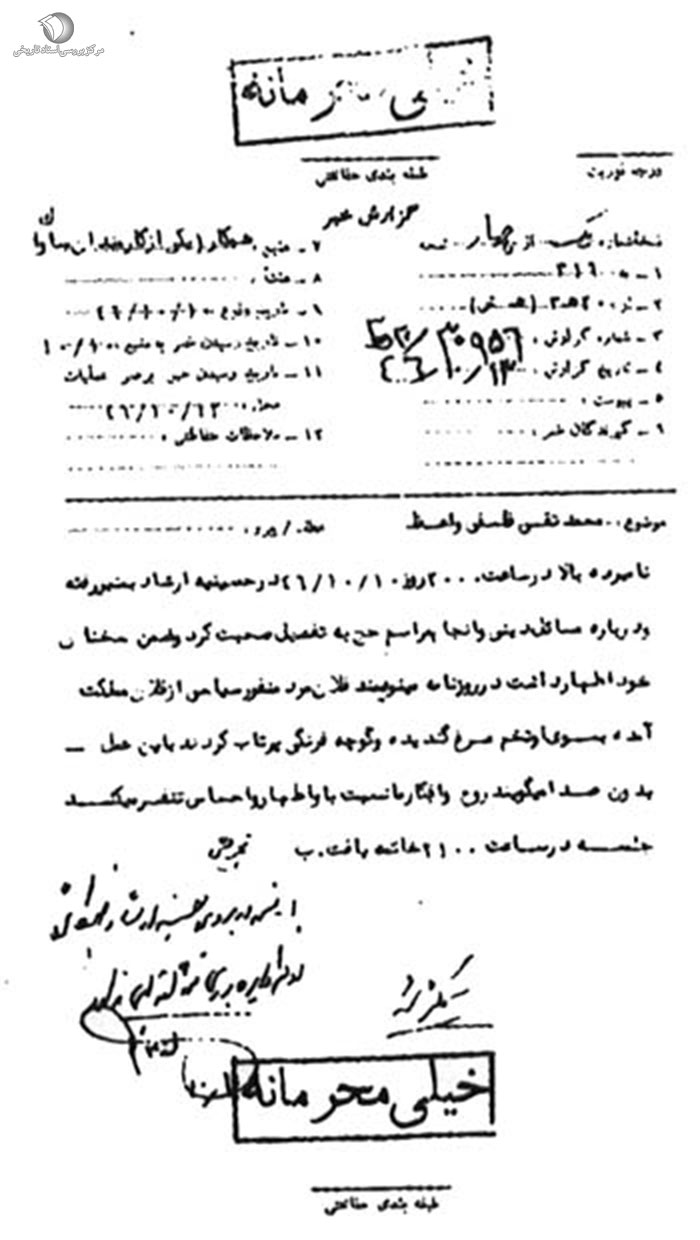 مرکز بررسی اسناد تاریخی
خیلی محرمانه
طبقه بندی حفاظتی
درجه فوریت
گزارش خبر
نسخه شماره یک از چهار نسخه
۱ - به ۳۱۶
۲ - از ۲۰ ه‍ ۳
۳ - شماره گزارش ۳۰۹۵۶
۴ - تاریخ گزارش ۴۶/۱۰/۱۳
۵ - پیوست
۶ - گیرندگان خبر
۷ - منبع همکار (یکی از کارمندان ساواک
۸ - منشأ
۹ - تاریخ وقوع ۴۶/۱۰/۱۰
۱۰ - تاریخ رسیدن خبر به منبع ۱۰/۱۰
۱۱ - تاریخ رسیدن خبر برهبر عملیات
محل ۴۶/۱۰/۱۲
۱۲ - ملاحظات حفاظتی
موضوع محمد تقی فلسفی واعظ
عطف / پیرو
نامبرده بالا در ساعت ۲۰۰۰ روز ۴۶/۱۰/۱۰ در حسینیه ارشاد بمنبر رفته
و درباره مسائل دینی و انجام مراسم حج به تفصیل صحبت کرد و ضمن سخنان
خود اظهار داشت در روزنامه مینویسند فلان مرد منفور سیاسی از فلان مملکت
آمده بسوی او تخم مرغ گندیده و گوجه فرنگی پرتاب کردند با این عمل
بدون صدا میگویند روح و افکار ما نسبت باو اظهار و احساس تنفر میکند
جلسه در ساعت ۲۱۰۰ خاتمه یافت. ب
خیلی محرمانه
طبقه بندی حفاظتی